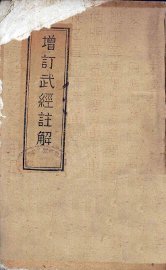 增訂武經註解